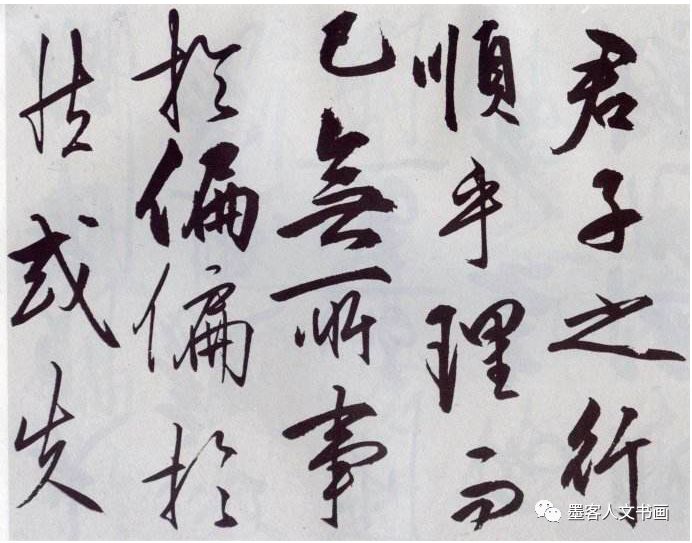 君子之行
順乎理而
已無所事
於偏偏於
或失
墨客人文书画